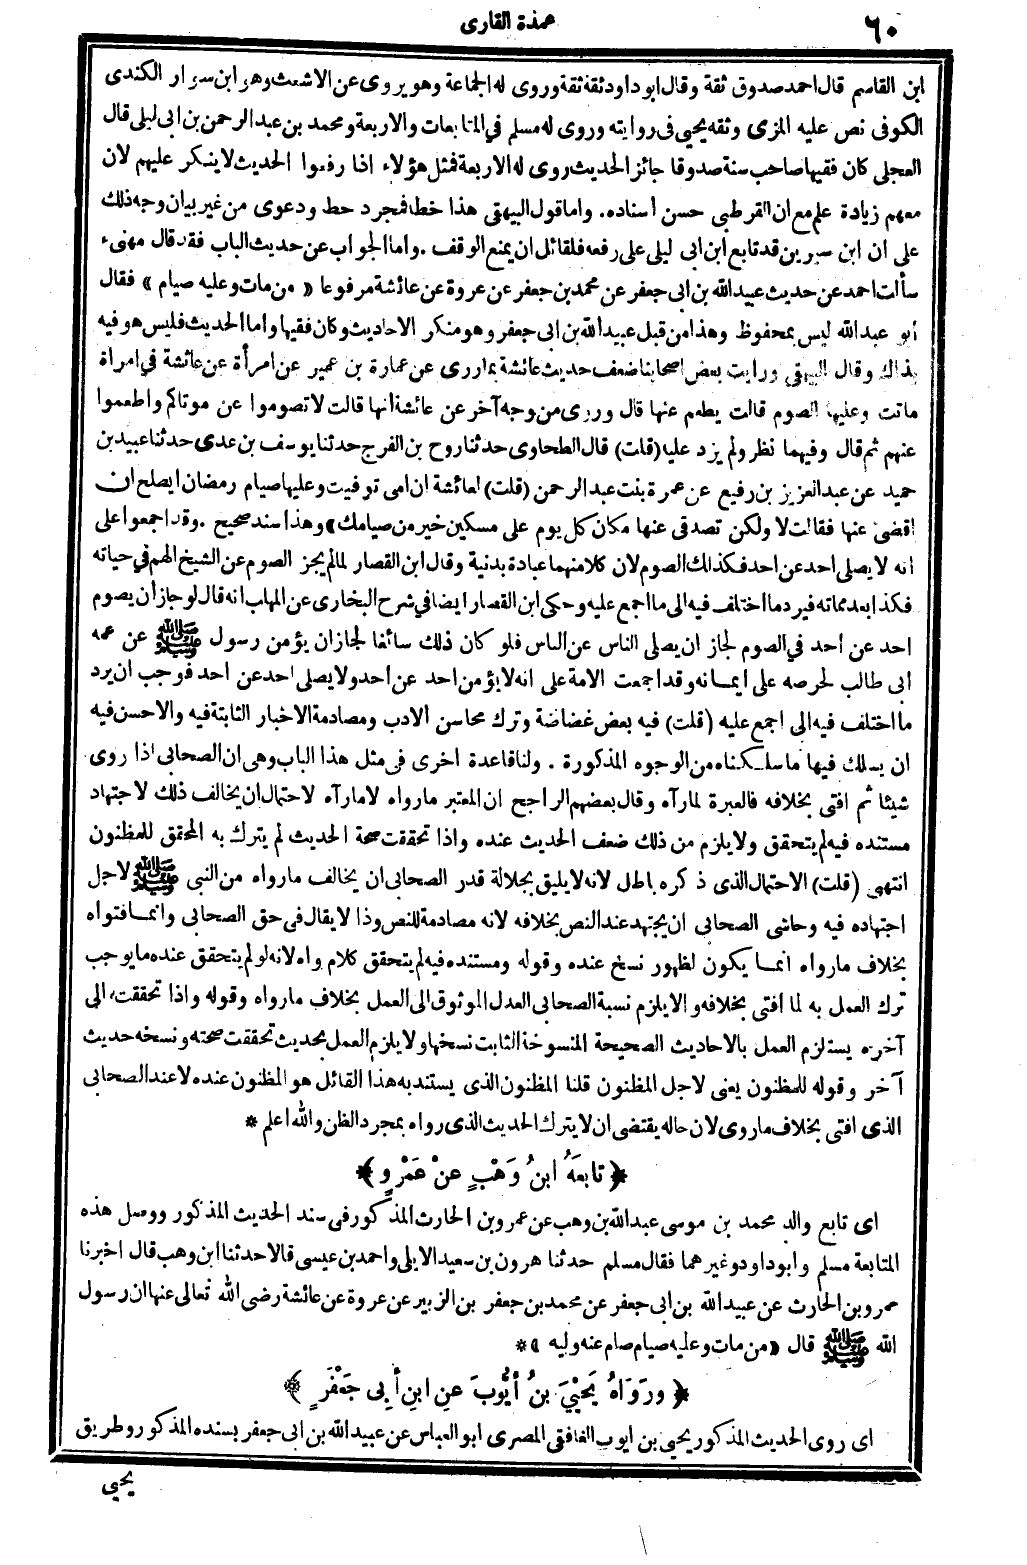 ٦٠
عمدة القارى
ابن القاسم قال احمد صدوق ثقة وقال ابو داود ثقة ثقة وروى له الجماعة وهو يروى عن الاشعث وهو ابن سوار الكندى
الكوفى نص عليه المزى وثقه يحيى فى روايته وروى له مسلم في المتابعات والاربعة ومحمد بن عبد الرحمن بن ابى ليلى قال
العجلى كان فقيها صاحب سنة صدوقا جائز الحديث روى له الاربعة فمثل هؤلاء اذا رفعوا الحديث لا ينكر عليهم لان
معهم زيادة علم مع ان القرطبى حسن أسناده. واما قول البيهقى هذا خطا فمجرد حط ودعوى من غير بيان وجه ذلك
على ان ابن سيرين قد تابع ابن ابى ليلى على رفعه فلقائل ان يمنع الوقف . واما الجواب عن حديث الباب فقد قال مهنىء
سألت احمد عن حديث عبيد الله بن ابى جعفر عن محمد بن جعفر عن عروة عن عائشة مرفوعا « من مات وعليه صيام » فقال
أبو عبد الله ليس بمحفوظ وهذا من قبل عبيد الله بن ابى جعفر وهو منكر الاحاديث وكان فقيها واما الحديث فليس هو فيه
بذاك وقال البيهقى ورايت بعض اصحابنا ضعف حديث عائشة بما روى عن عمارة بن عمير عن امرأة عن عائشة في امراة
ماتت وعليها الصوم قالت يطعم عنها قال وروى من وجه آخر عن عائشة انها قالت لا تصوموا عن موتاكم واطعموا
عنهم ثم قال وفيهما نظر ولم يزد عليا (قلت) قال الطحاوى حدثنا روح بن الفرج حدثنا يوسف بن عدى حدثنا عبيد بن
حميد عن عبد العزيز بن رفيع عن عمرة بنت عبد الرحمن (قلت) لعائشة ان امى توفيت وعليها صيام رمضان ايصلح ان
اقضى عنها فقالت لا ولكن تصدقى عنها مكان كل يوم على مسكين خير من صيامك» وهذا سند صحيح . وقد اجمعوا على
انه لا يصلى احد عن احد فكذلك الصوم لان كلا منهما عبادة بدنية وقال ابن القصار لما لم يجز الصوم عن الشيخ الهم في حياته
فكذا بعد مماته فيرد ما اختلف فيه الى ما اجمع عليه وحكى ابن القصار ايضا في شرح البخارى عن المهلب انه قال لو جاز أن يصوم
احد عن أحد في الصوم لجاز ان يصلى الناس عن الناس فلو كان ذلك سائغا لجاز ان يؤمن رسول ﷺ عن عمه
ابى طالب لحرصه على ايمانه وقد اجمعت الامة على انه لا يؤمن احد عن أحد ولا يصلى احد عن احد فوجب ان يرد
ما اختلف فيه الى اجمع عليه (قلت) فيه بعض غضاضة وترك محاسن الادب ومصادمة الاخبار الثابتة فيه والاحسن فيه
ان يسلك فيها ما سلكناه من الوجوه المذكورة . ولنا قاعدة اخرى فى مثل هذا الباب وهى ان الصحابى اذا روى
شيئا ثم افتى بخلافه فالعبرة لما رآه وقال بعضهم الراجح ان المعتبر ما رواه لا ما رآه لاحتمال ان يخالف ذلك لاجتهاد
مستنده فيه لم يتحقق ولا يلزم من ذلك ضعف الحديث عنده واذا تحققت صحة الحديث لم يترك به المحقق للمظنون
انتهى (قلت) الاحتمال الذى ذكره باطل لانه لا يليق بجلالة قدر الصحابى ان يخالف ما رواه من النبى ﷺ لاجل
اجتهاده فيه وحاشى الصحابى ان يجتهد عند النص بخلافه لانه مصادمة للنص وذا لا يقال فى حق الصحابى وانما فتواه
بخلاف ما رواه انما يكون لظهور نسخ عنده وقوله ومستنده فيه لم يتحقق كلام واه لانه لو لم يتحقق عنده ما يوجب
ترك العمل به لما افتى بخلافه والا يلزم نسبة الصحابى العدل الموثوق الى العمل بخلاف ما رواه وقوله واذا تحققت، الى
آخره يستلزم العمل بالاحاديث الصحيحة المنسوخة الثابت نسخها ولا يلزم العمل بحديث تحققت صحته ونسخه حديث
آخر وقوله للمظنون يعنى لاجل المظنون قلنا المظنون الذى يستند به هذا القائل هو المظنون عنده لا عند الصحابى
الذى افتى بخلاف ما روى لان حاله يقتضى ان لا يترك الحديث الذى رواه بمجرد الظن والله اعلم *
﴿ تابَعَهُ ابنُ وَهْبٍ عنْ عَمْرٍو ﴾
اى تابع والد محمد بن موسى عبد الله بن وهب عن عمرو بن الحارث المذكور فى سند الحديث المذكور ووصل هذه
المتابعة مسلم وابو داود وغيرهما فقال مسلم حدثنا هرون بن سعيد الايلى واحمد بن عيسى قالا حدثنا ابن وهب قال اخبرنا
عمرو بن الحارث عن عبيد الله بن ابى جعفر عن محمد بن جعفر بن الزبير عن عروة عن عائشة رضى الله تعالى عنها ان رسول
الله ﷺ قال « من مات وعليه صيام صام عنه وليه » *
﴿ ورَوَاهُ يَحْيَى بنُ أيُّوبَ عنِ ابنِ أبِى جَعْفَرٍ ﴾
اى روى الحديث المذكور يحيى بن ايوب الغافقى المصرى ابو العباس عن عبيد الله بن ابى جعفر بسنده المذكور وطريق
يحيى